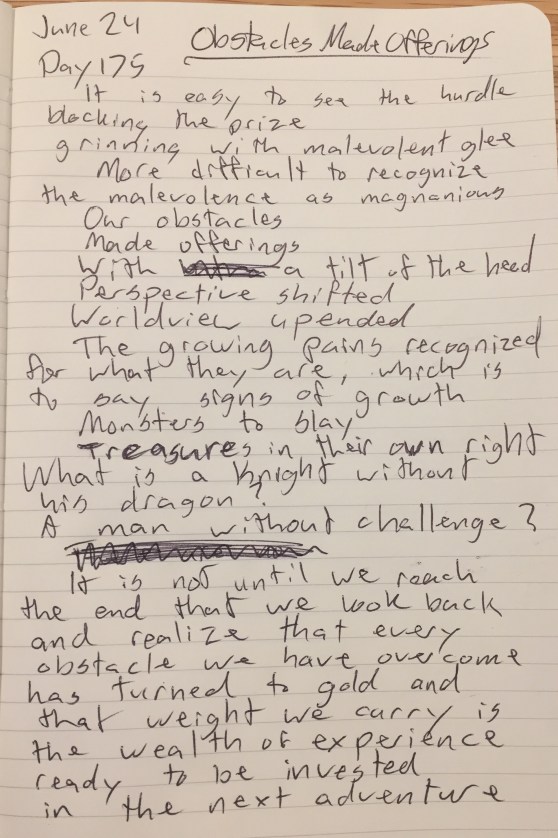 June 24
Obstacles Made Offerings
Day 175
It is easy to see the hurdle
blocking the prize
grinning with malevolent glee
More difficult to recognize
the malevolence as magnanious
Our obstacles
Made offerings
With a tilt of the head
Perspective shifted
Worldview upended
The growing pains recognized
for what they are, which is
to say signs of growth
Monsters to slay
Treasures in their own right
What is a knight without
his dragon?
A man without challenge?
It is not until we reach
the end that we look back
and realize that every
obstacle we have overcome
has turned to gold and
that weight we carry is
the wealth of experience
ready to be invested
in the next adventure